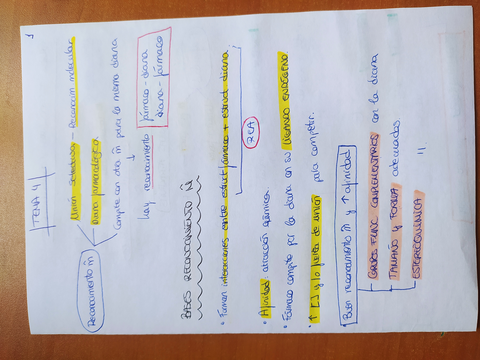 1
TEMA 4
Reconocimiento m̃
Unión Selectiva - Reconocim molecular
Diana farmacológica
Compite con otra m̃ para la misma diana
↓
Hay reconocimiento
fármaco - diana
diana - fármaco
BASES RECONOCIMIENTO M̃
• Forman interacciones entre estruct fármaco + estruct. diana
REA
• Afinidad atracción químicos.
• Fármaco compite por la diana con su LIGANDO ENDÓGENO
• ↑ [ ] y lo de unión para competir.
Buen reconocimiento m̃ y ↑ afinidad
GRUPOS FUNC COMPLEMENTARIOS con la diana
TAMAÑO y FORMA adecuados
ESTEREOQUÍMICA "